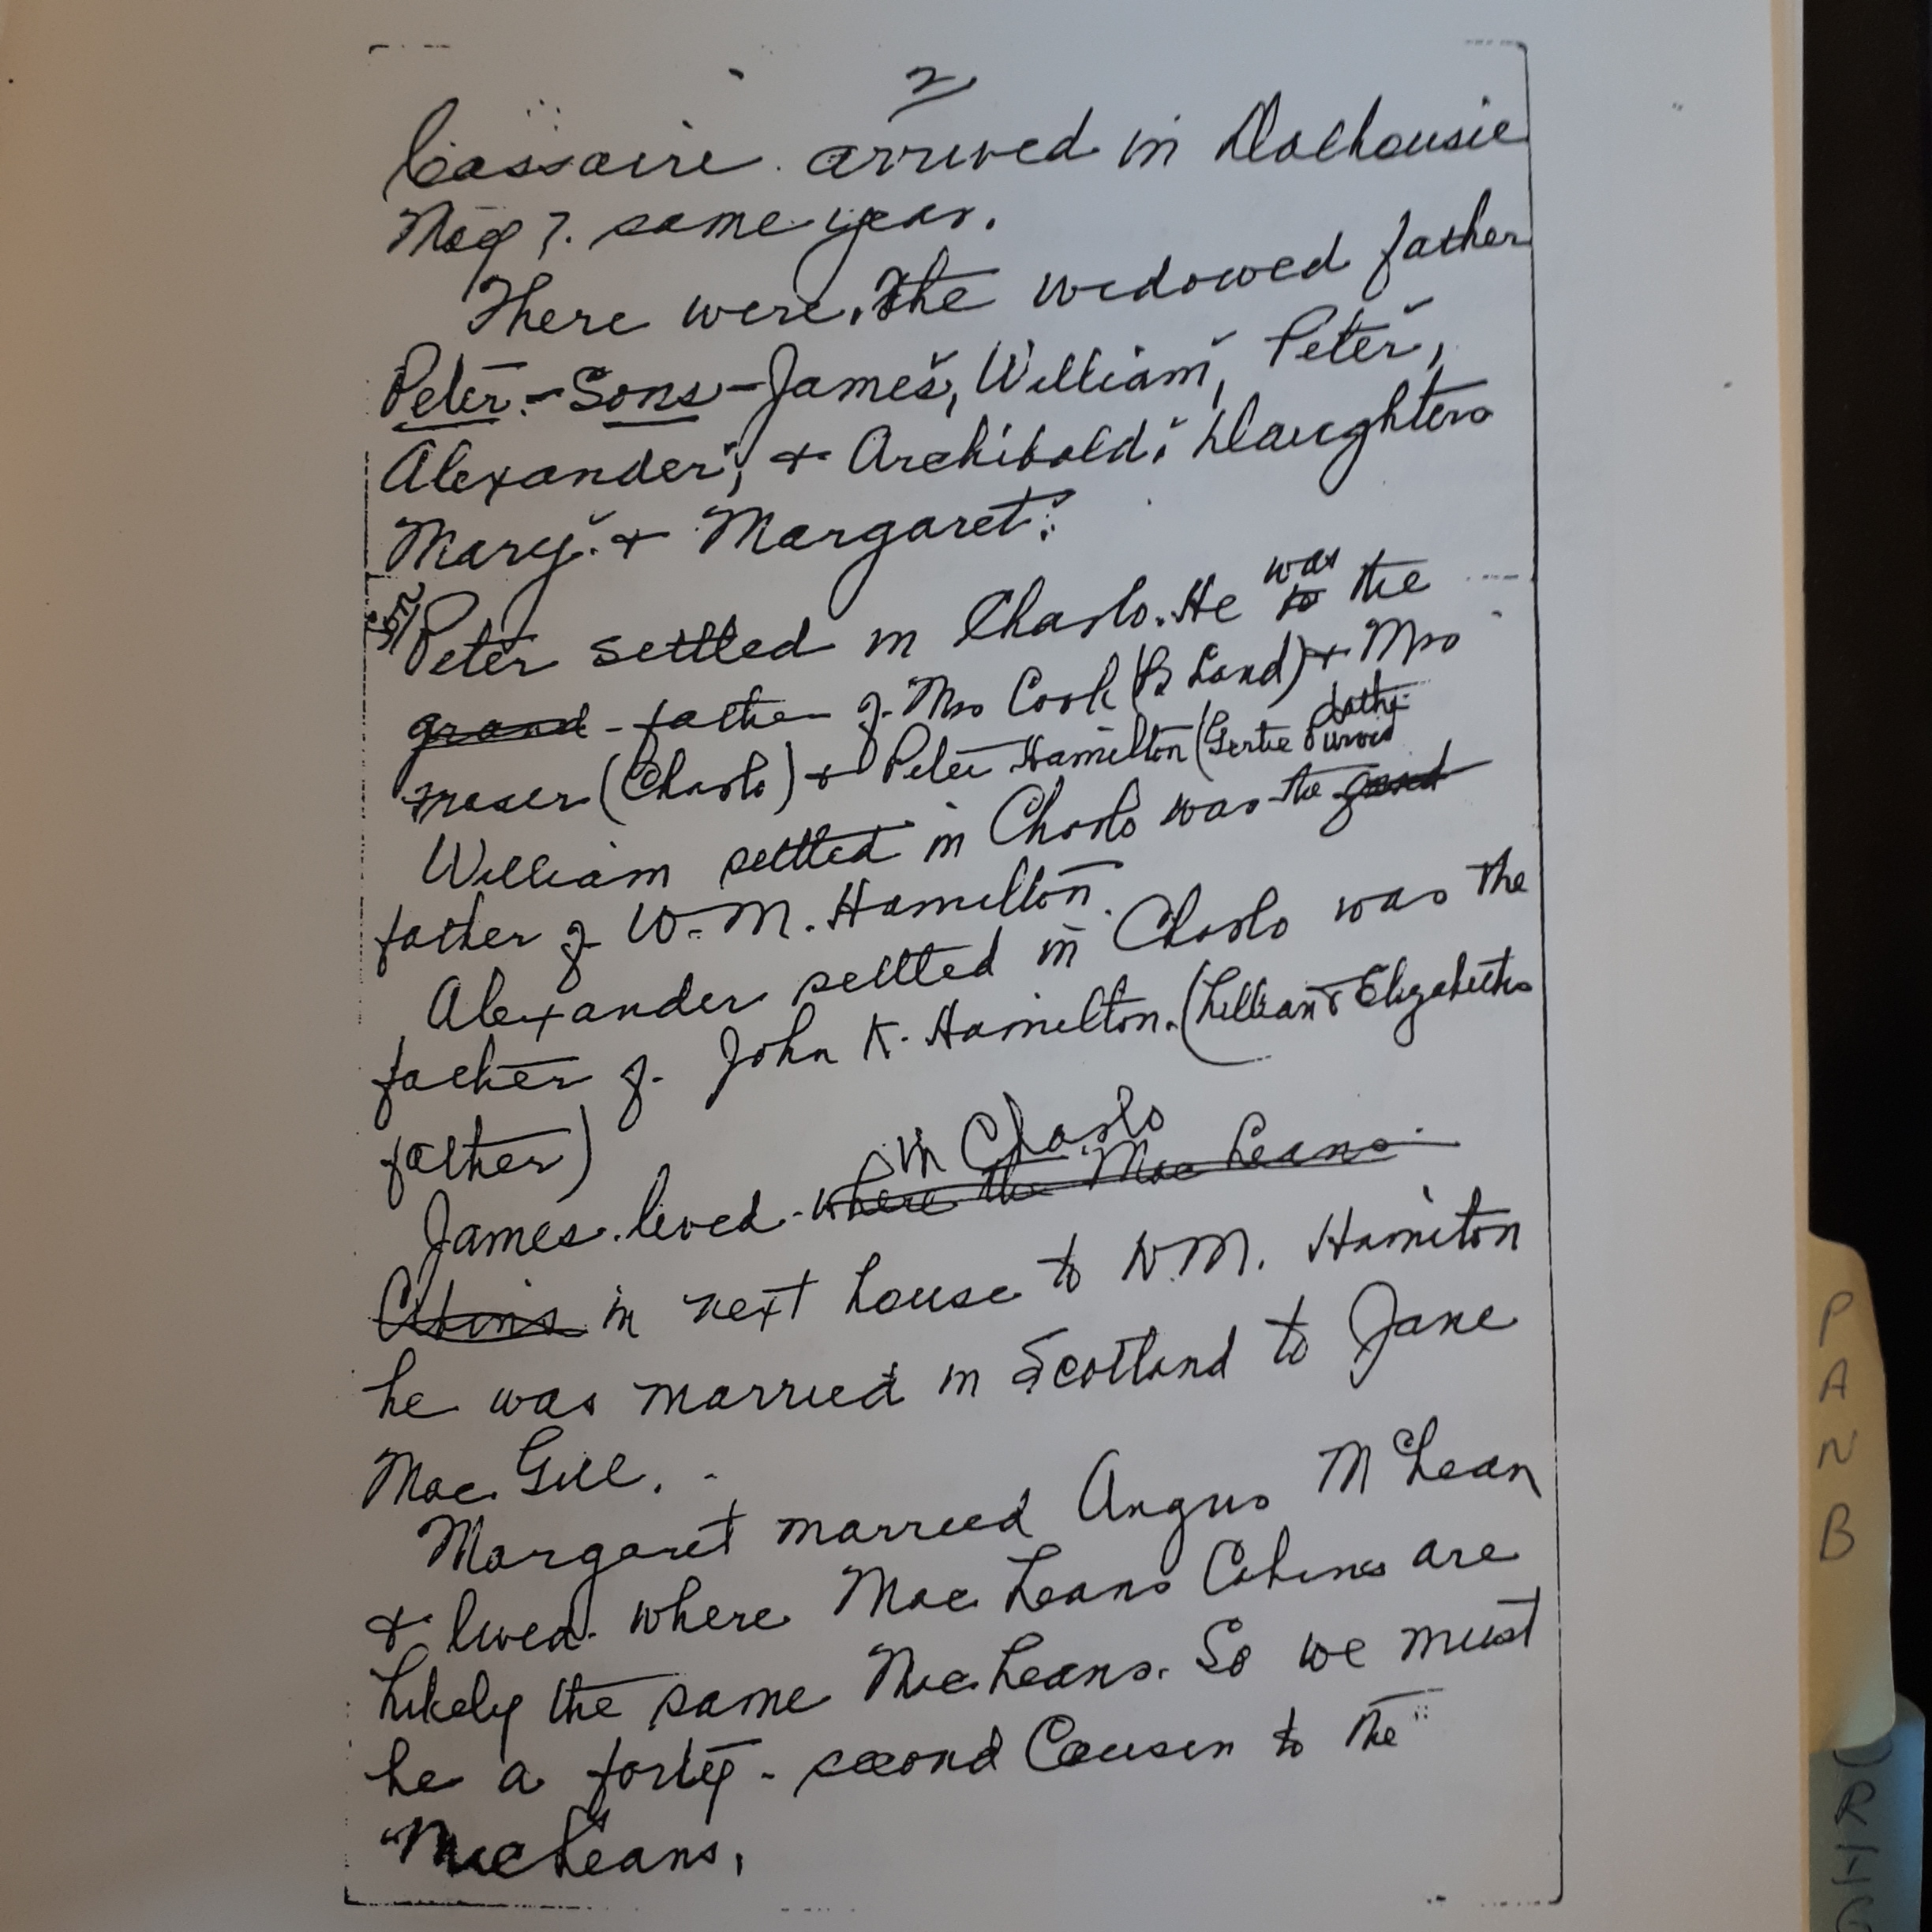 2
Cassaire. arrived in Dalhousie
May 7. same year.
There were, the widowed father
Peter.- Sons - James, William, Peter,
Alexander, + Archibald. Daughters
Mary. + Margaret.
was
Peter settled in Charlo. He to the
grand - father of Mrs Cook (B Land) + Mrs
father
Fraser (Charlo) + Peter Hamilton (Gertie Purvis
William settled in Charlo was the grand
father of W. M. Hamilton.
Alexander settled in Charlo was the
father of John K. Hamilton. (Lillian & Elizabeths
father)
in Charlo
James. lived where the Mac Leans
Cabins in next house to W.M. Hamilton
he was married in Scotland to Jane
Mac Gill.
Margaret married Angus McLean
+ lived where Mac Leans Cabins are
Likely the same MacLeans. So we must
be a forty - second Cousin to the
MacLeans.
P
A
N
B
R